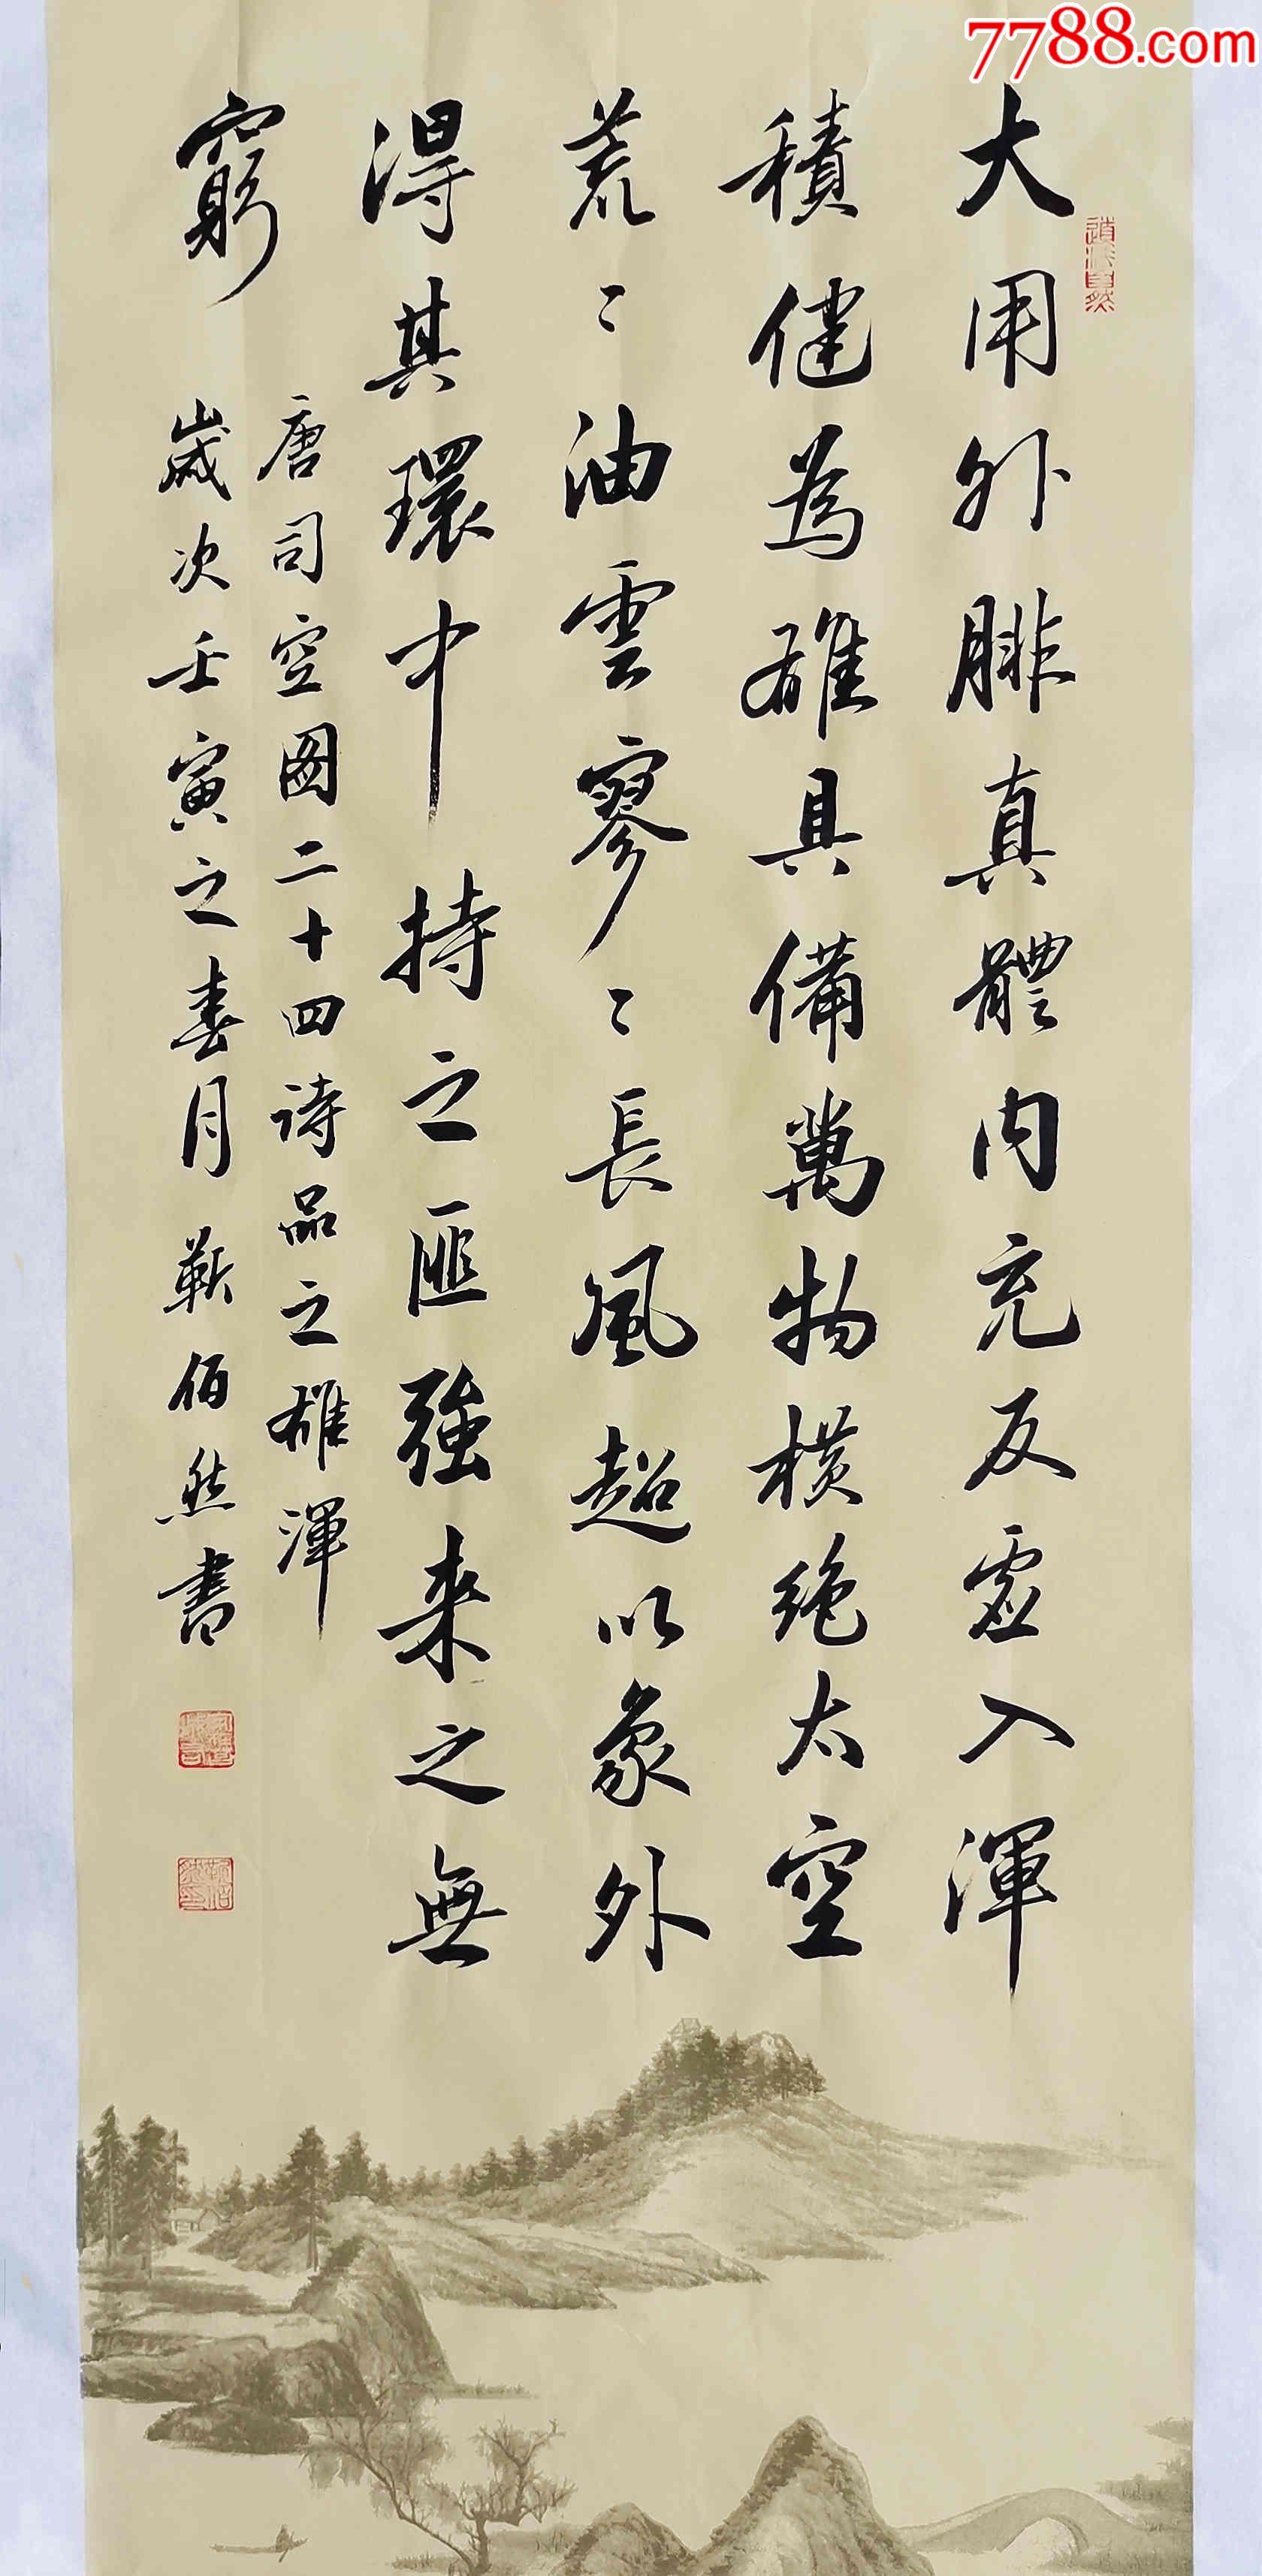 7788.com
道法自然
大用外腓真體内充反虚入渾
積健為雄具備萬物横绝太空
荒〻油雲寥〻長風超以象外
得其環中持之匪強来之無
窮
唐司空图二十四诗品之雄渾
歲次壬寅之春月靳佰然書